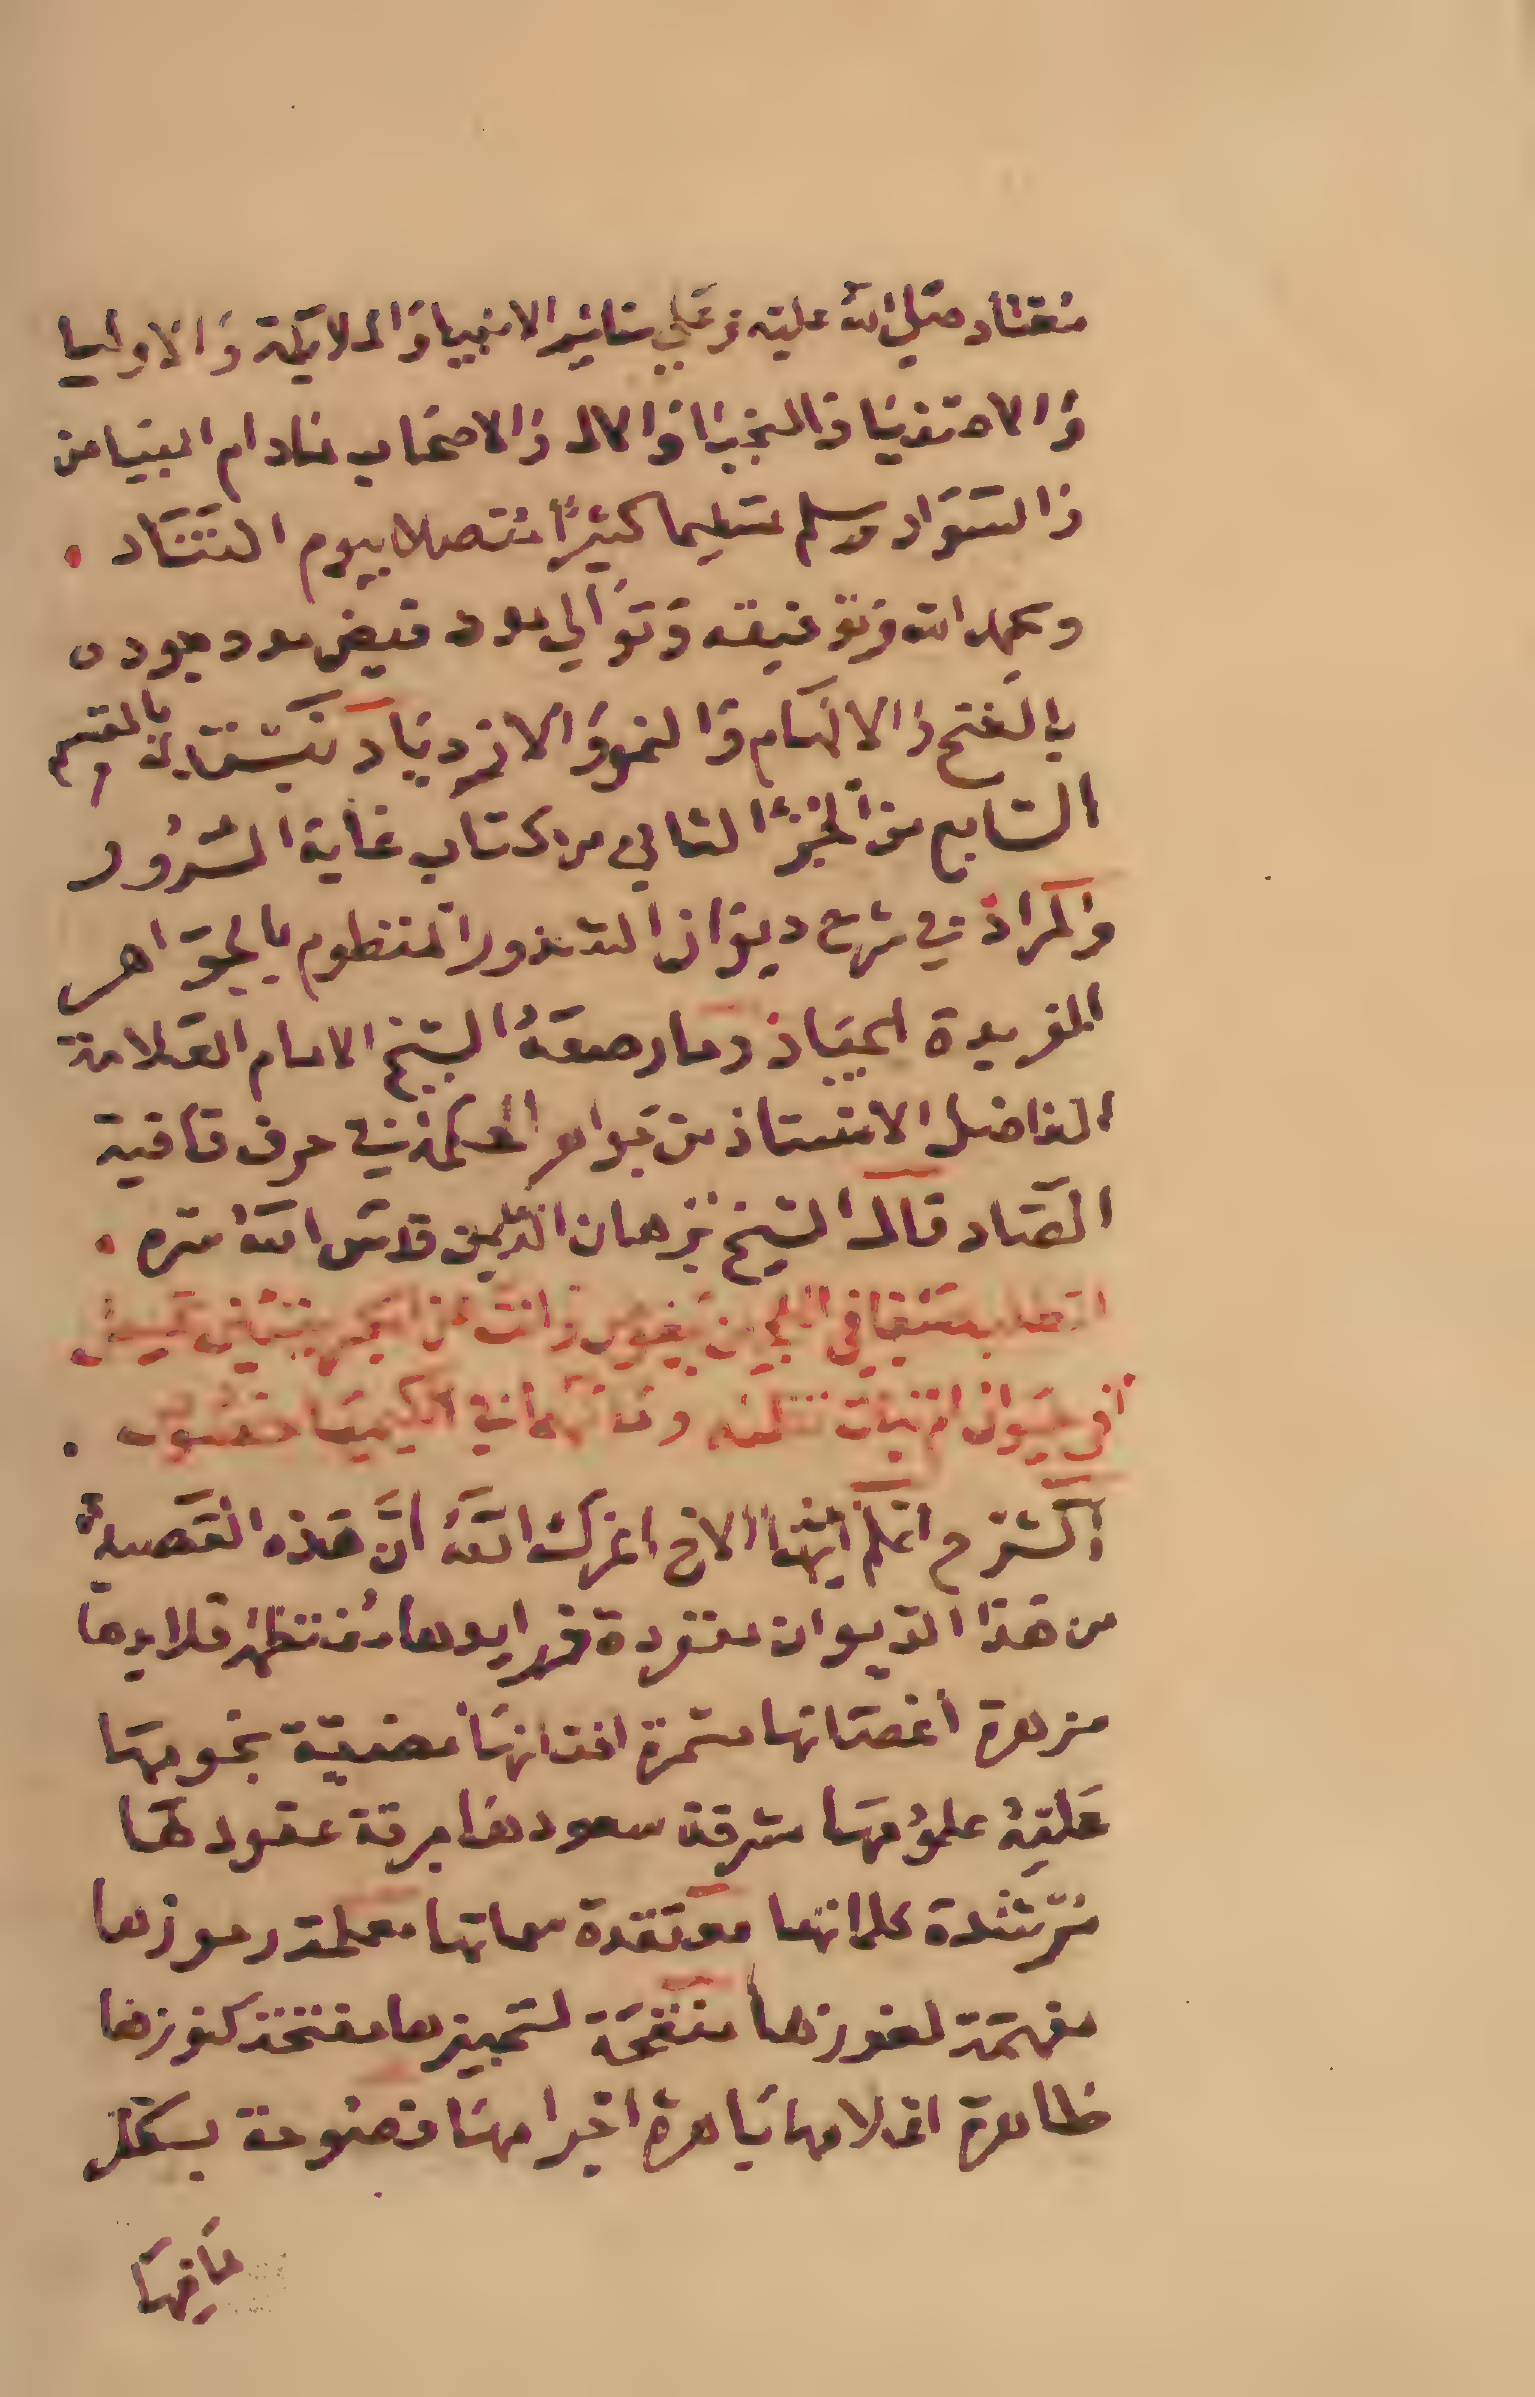 معتاد صلي الله عليه وعلي سائر الانبيا والملايكة والاوليا
والاصفيا والنجبا والال والاصحاب مادام البياض
والسواد وسلم تسليما كثيرا متصلا بيوم التناد .
وبحمد الله وتوفيقه وتوالي مدد فيض جوده
بالفتح والالهام والنمو والازدياد نبتدئ بالقسم
السابع من الجزء الثاني من كتاب غاية السرور
والمراد في شرح ديوان الشذور المنظوم بالجواهر
الفريدة الجياد وما رصعه الشيخ الامام العلامة
الفاضل الاستاذ من جواهر الحكمة في حرف قافية
الصاد قال الشيخ برهان الدين قدس الله سره .
اتطلب
أفي حيوان ام نبات تظنه وما في الكيميا
الشرح اعلم ايها الاخ اعزك الله أن هذه القصيدة
من هذا الديوان منفردة فرايدها منتظمة قلايدها
مزهرة أغصانها مثمرة افنانها مضية نجومها
علية علومها مشرقة سعودها مبرقة عقودها
مرشدة كلماتها معتقدة سماتها معلمة رموزها
مفهمة لغوزها منقحة لتمييزها مفتحة كنوزها
ظاهرة اعلامها باهرة اجرامها مصنوعة بشكل
مافيها